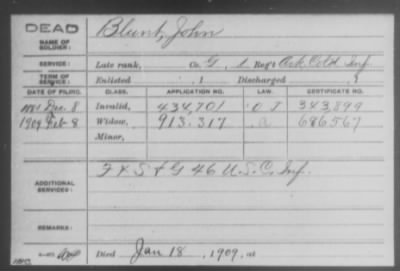 DEAD
Blunt, John
NAME OF SOLDIER:
SERVICE: Late rank, Co. G, 1 Reg't Ark Cold Inf.
TERM OF SERVICE: Enlisted , 1 Discharged , 1
DATE OF FILING. CLASS. APPLICATION NO. LAW. CERTIFICATE NO.
1881 Dec. 8 Invalid, 434,701 343,899
1909 Feb 8 Widow, 913.317 a 686567
Minor,
ADDITIONAL SERVICES: F & S & G 46 U.S.C. Inf.
REMARKS:
Died Jan 18, 1909, at